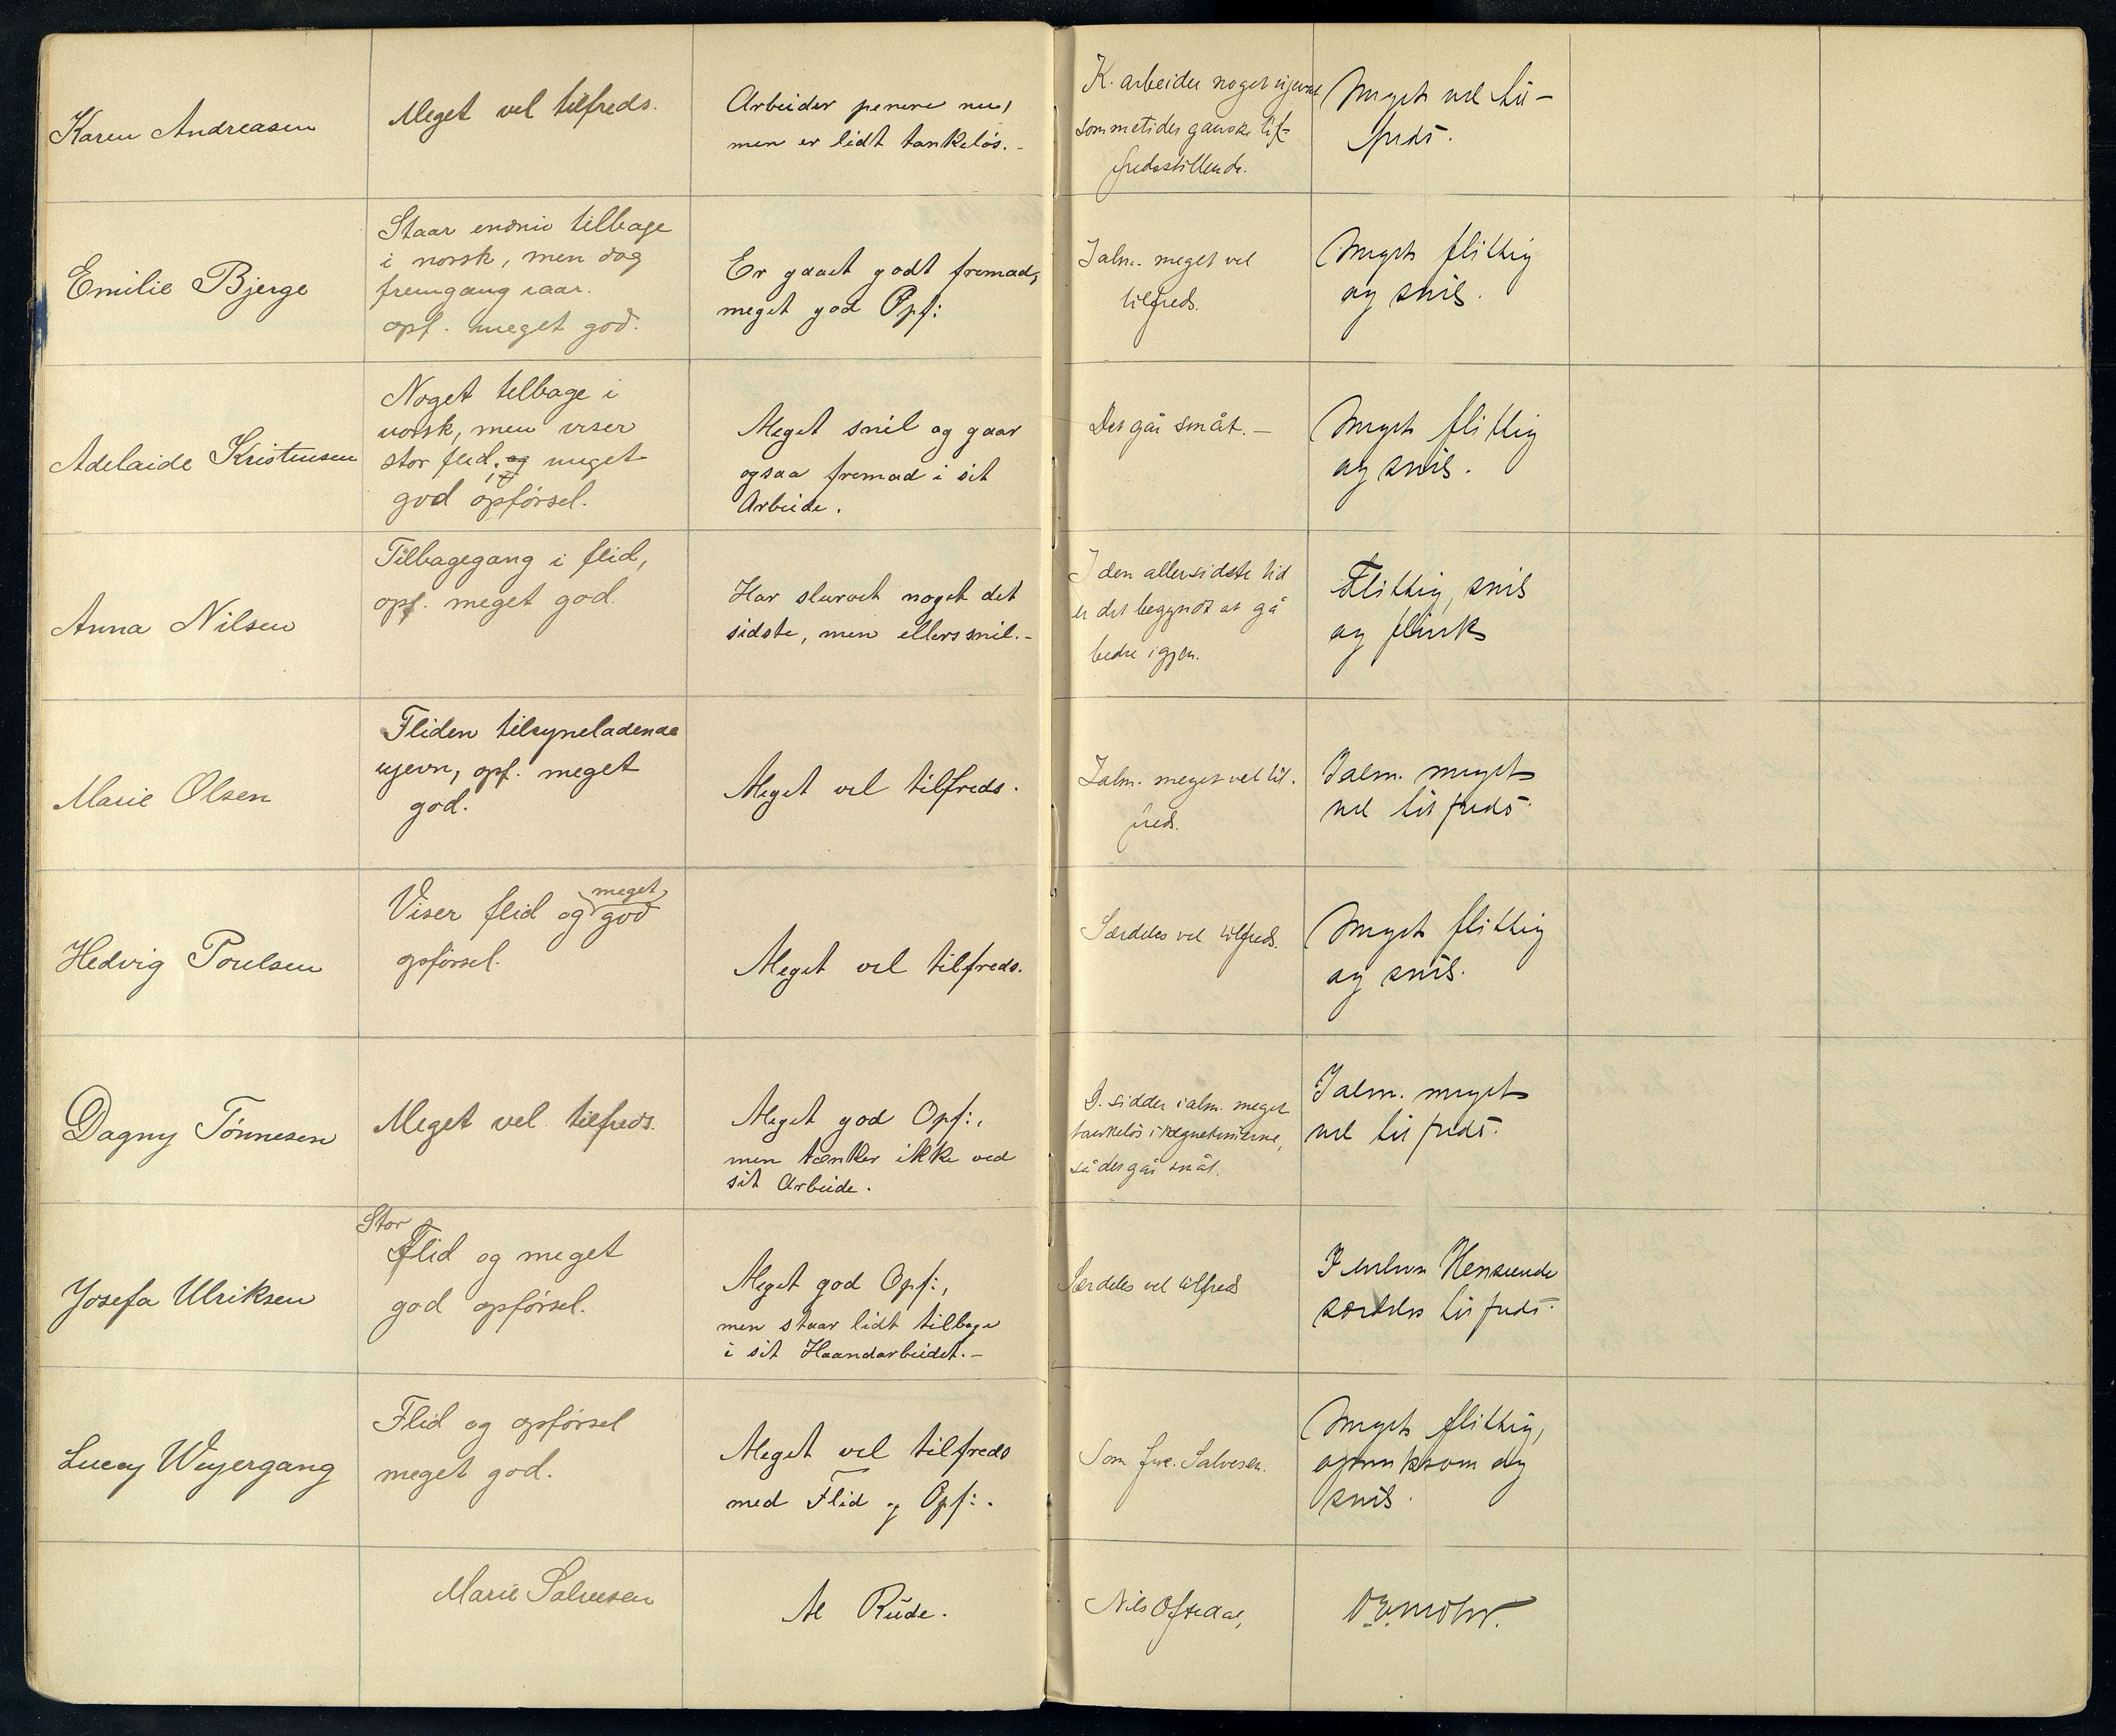 Karen Andreasen
Meget vel tilfreds.
Arbeider penere nu,
men er lidt tankeløs. -
K. arbeider noget ujevnt
sommetider ganske til-
fredsstillende.
Meget vel til-
freds.
Emilie Bjerge
Staar endnu tilbage
i norsk, men dog
fremgang iaar.
opf. meget god.
Er gaaet godt fremad,
meget god Opf:
I alm. meget vel
tilfreds.
Meget flittig
og snil.
Adelaide Kristensen
Noget tilbage i
norsk, men viser
stor flid, og meget
god opførsel.
Meget snil og gaar
ogsaa fremad i sit
Arbeide.
Det går småt. —
Meget flittig
og snil.
Anna Nilsen
Tilbagegang i flid,
opf. meget god.
Har slurvet noget det
sidste, men ellers snil. -
I den allersidste tid
er det begyndt at gå
bedre igjen.
Flittig, snil
og flink
Marie Olsen
Fliden tilsyneladende
ujevn, opf. meget
god.
Meget vel tilfreds.
I alm. meget vel til-
freds.
I alm. meget
vel tilfreds.
Hedvig Poulsen
meget
Viser flid og god
opførsel.
Meget vel tilfreds.
Særdeles vel tilfreds.
Meget flittig
og snil.
Dagny Tønnesen
Meget vel tilfreds.
Meget god Opf:,
men tænker ikke ved
sit Arbeide.
D. sidder i alm. meget
tankeløs i regnetimerne,
så det går småt.
I alm. meget
vel tilfreds.
Josefa Ulriksen
Stor
Flid og meget
god opførsel.
Meget god Opf:,
men staar lidt tilbage
i sit Haandarbeidet. -
Særdeles vel tilfreds
I enhver Henseende
særdeles tilfreds.
Lucy Weyergang
Flid og opførsel
meget god.
Meget vel tilfreds
med Flid og Opf:.
Som frk. Salvesen.
Meget flittig,
opmerksom og
snil.
Marie Salvesen
M Rude.
Nils Oftedal,